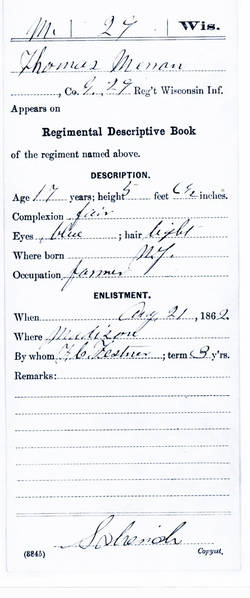 M. | 29 | Wis.
Thomas
, Co. G, 29 Reg't Wisconsin Inf.
Appears on
Regimental Descriptive Book
of the regiment named above.
DESCRIPTION.
Age 17 years; height 5 feet inches.
Complexion fair
Eyes blue; hair light
Where born N.Y.
Occupation farmer
ENLISTMENT.
When Aug 21, 1862.
Where Madison
By whom; term 3 y'rs.
Remarks:
(8845) Copyist.